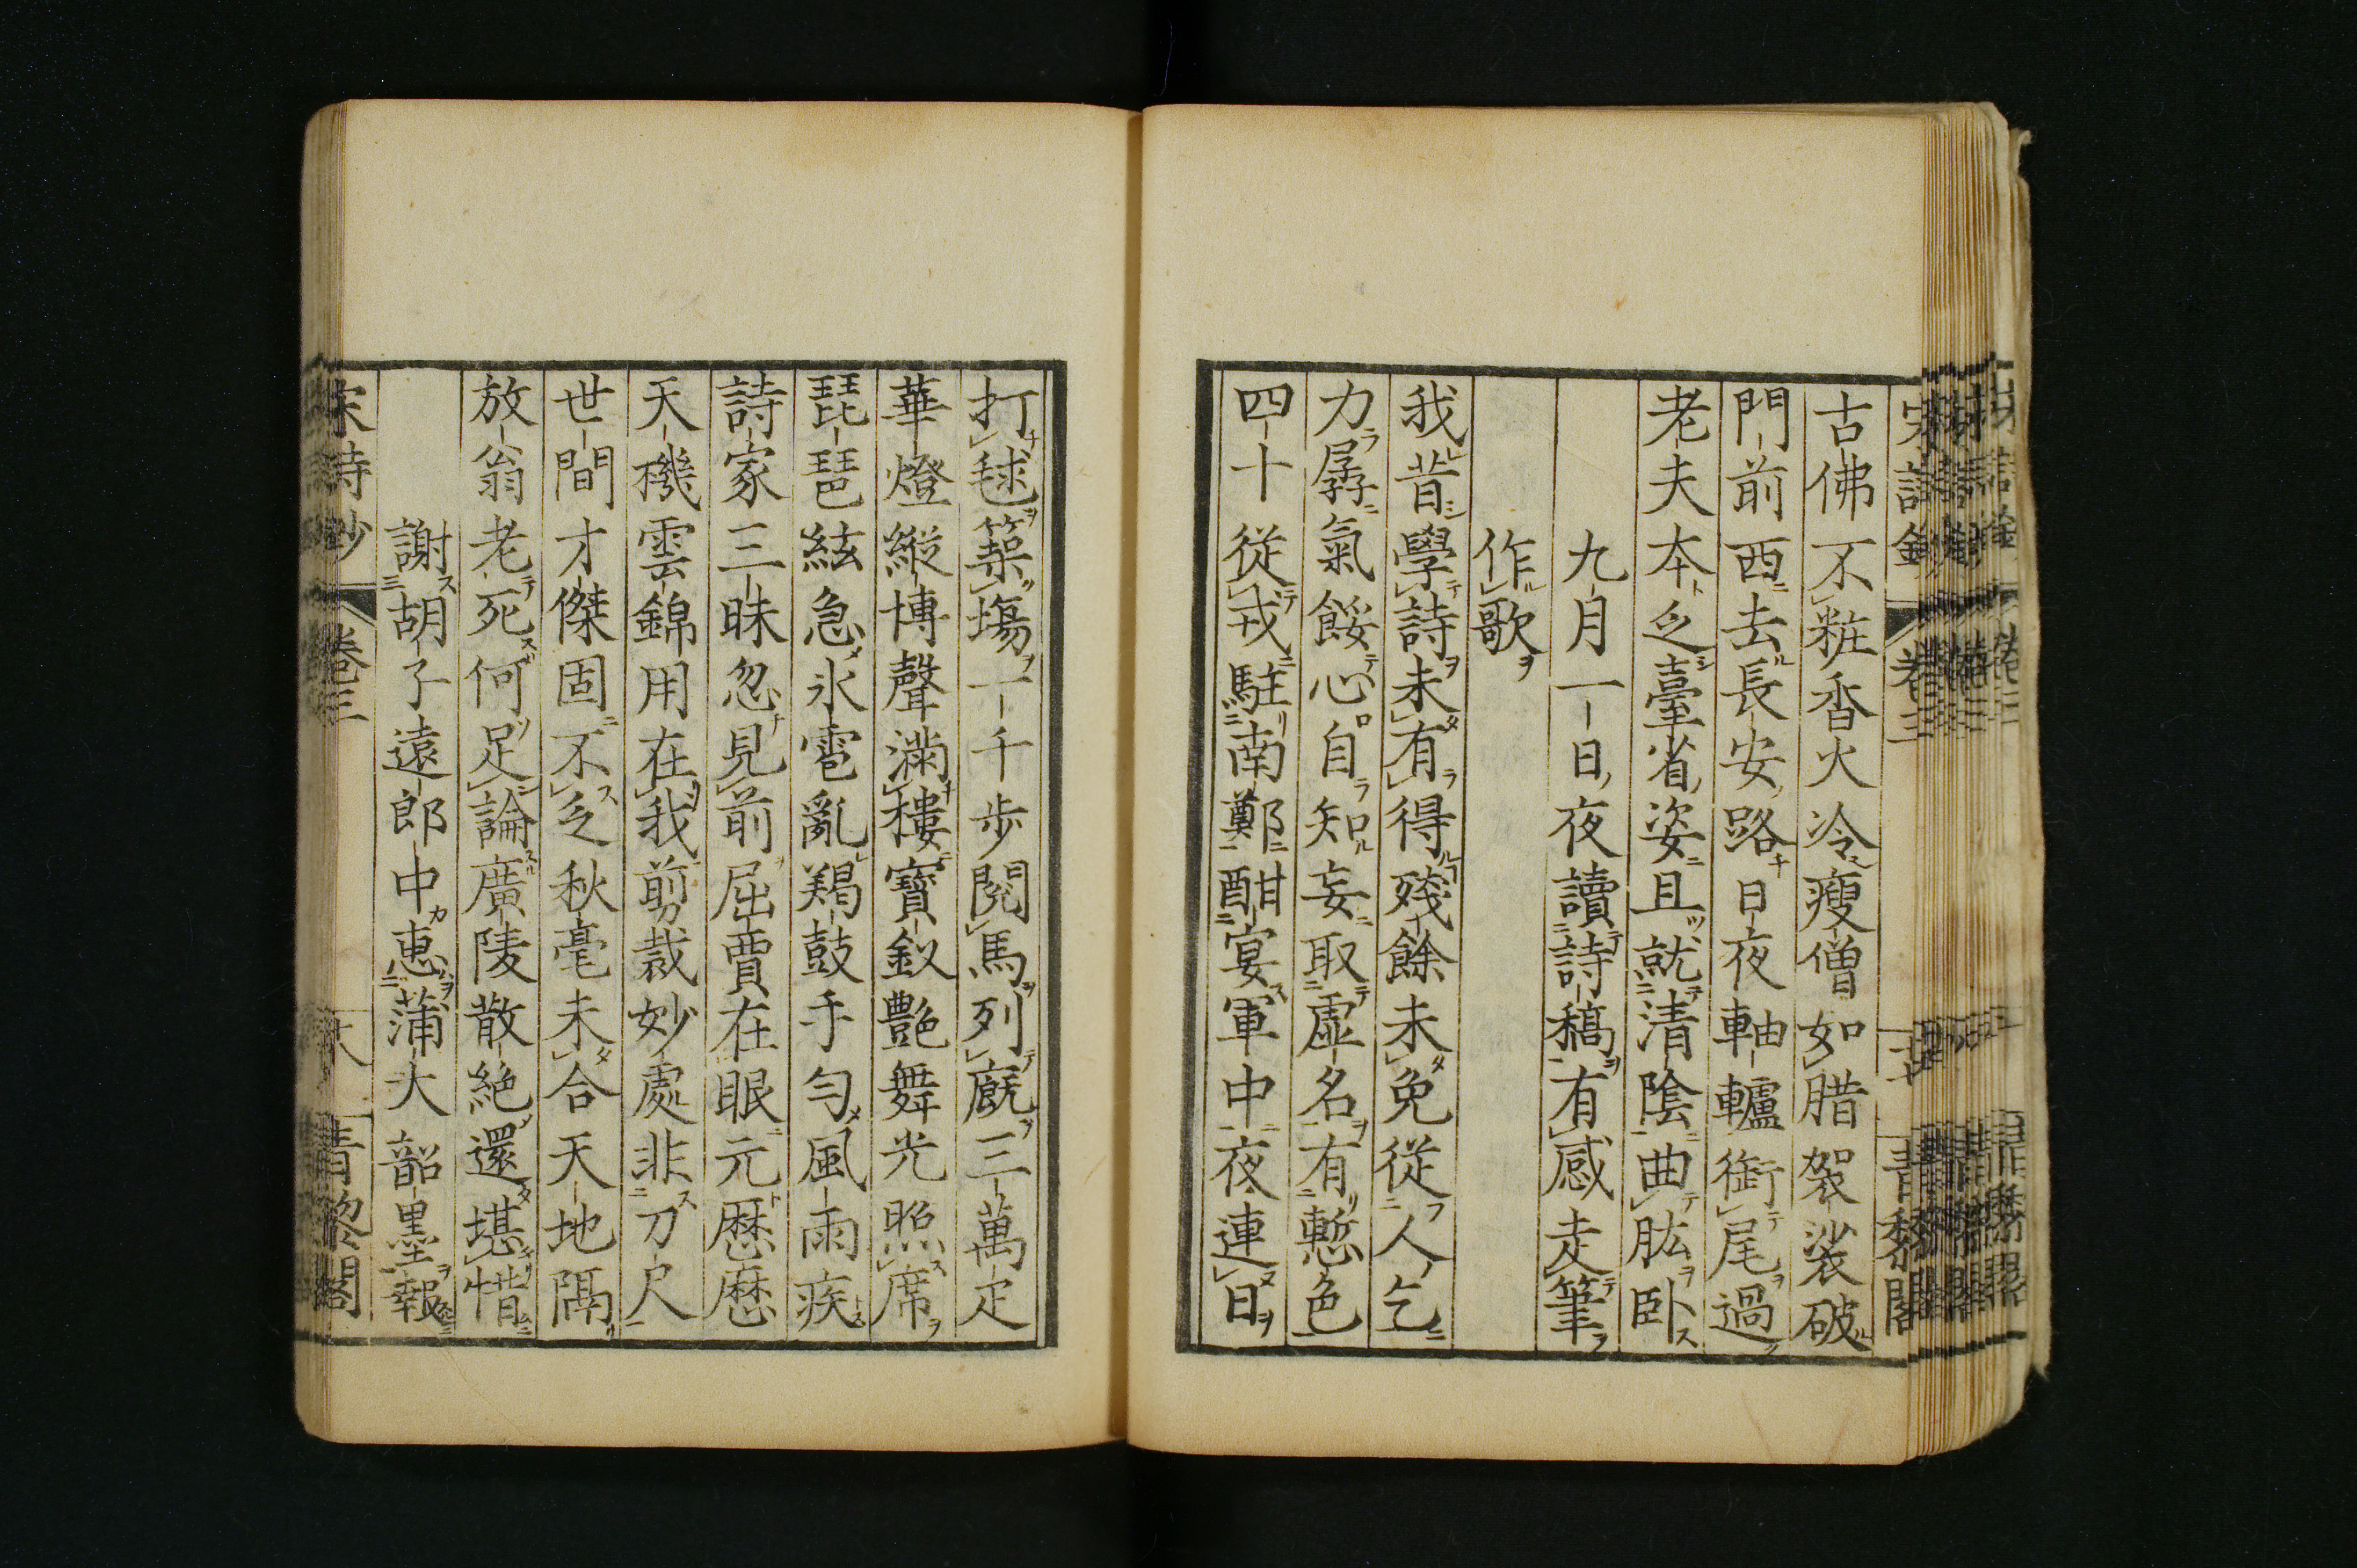 古佛不粧香火冷瘦僧如腊袈裟破
門前西去長安路日夜車轤銜尾過
老夫本乏臺省姿且就清陰曲肱卧
九月一日夜讀詩稿有感走筆
作歌
我昔學詩未有得殘餘未免從人乞
力孱氣餒心自知妄取虛名有慙色
四十從戎駐南鄭酣宴軍中夜連日
打毬築塲一千步閲馬列厩三萬疋
華燈縱博聲滿樓寶釵艷舞光照席
琵琶絃急氷雹亂羯鼓手勻風雨疾
詩家三昧忽見前屈賈在眼元歷歷
天機雲錦用在我剪裁妙處非刀尺
世間才傑固不乏秋毫未合天地隔
放翁老死何足論廣陵散絶還堪惜
謝胡子遠郎中惠蒲大韶墨報
宋詩鈔 卷三 青黎閣